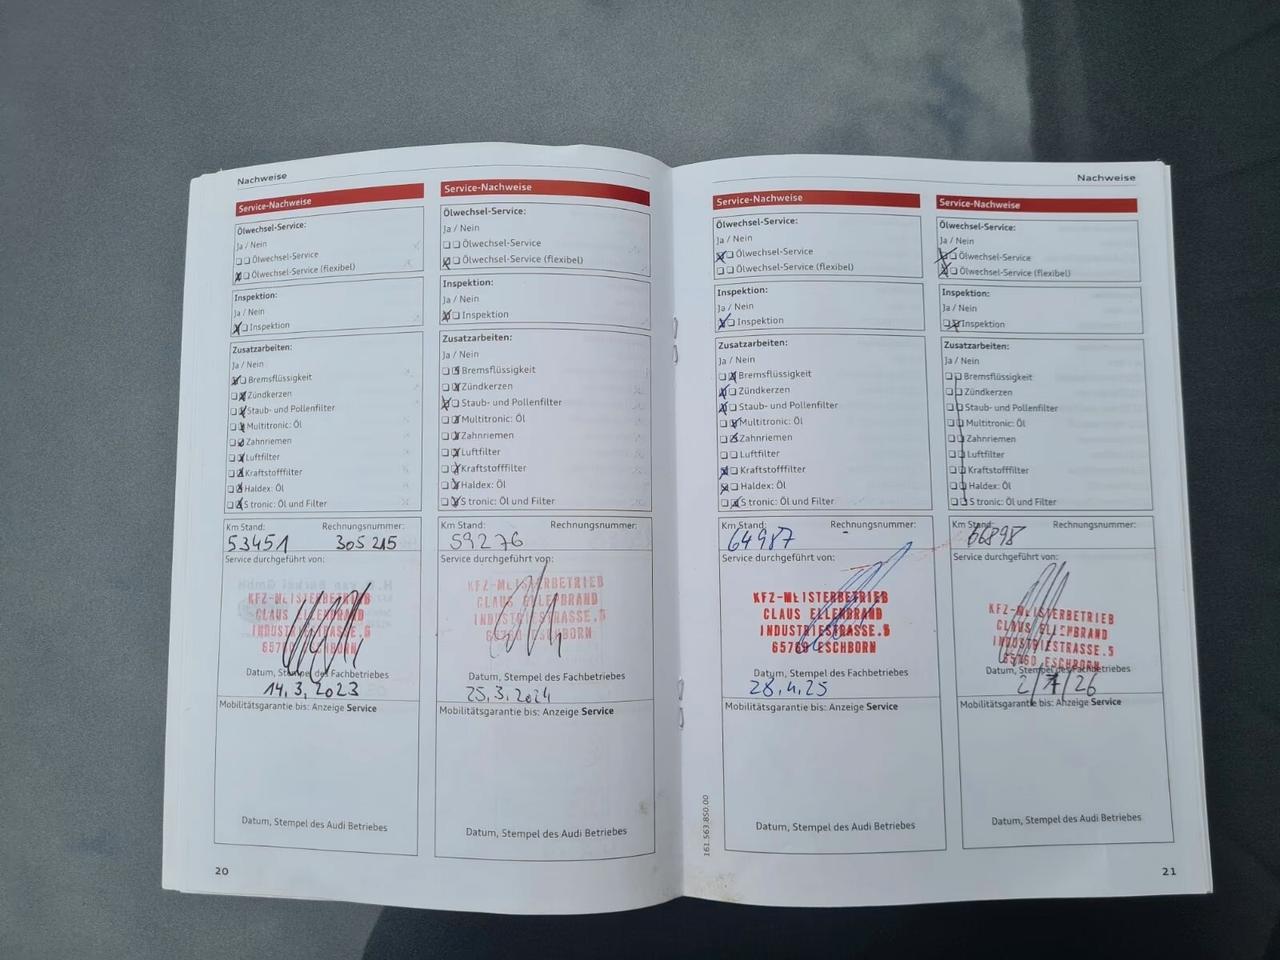 Nachweise
Service-Nachweise
Ölwechsel-Service:
Ja / Nein
Ölwechsel-Service
Ölwechsel-Service (flexibel)
Inspektion:
Ja / Nein
Inspektion
Zusatzarbeiten:
Ja / Nein
Bremsflüssigkeit
Zündkerzen
Staub- und Pollenfilter
Multitronic: Öl
Zahnriemen
Luftfilter
Kraftstofffilter
Haldex: Öl
S tronic: Öl und Filter
Km Stand: Rechnungsnummer:
53451 305 215
Service durchgeführt von:
KFZ-MEISTERBETRIEB
CLAUS EILENBRAND
INDUSTRIESTRASSE.5
65760 ESCHBORN
Datum, Stempel des Fachbetriebes
14.3.2023
Mobilitätsgarantie bis: Anzeige Service
Datum, Stempel des Audi Betriebes
20
Service-Nachweise
Ölwechsel-Service:
Ja / Nein
Ölwechsel-Service
Ölwechsel-Service (flexibel)
Inspektion:
Ja / Nein
Inspektion
Zusatzarbeiten:
Ja / Nein
Bremsflüssigkeit
Zündkerzen
Staub- und Pollenfilter
Multitronic: Öl
Zahnriemen
Luftfilter
Kraftstofffilter
Haldex: Öl
S tronic: Öl und Filter
Km Stand: Rechnungsnummer:
59276
Service durchgeführt von:
KFZ-MEISTERBETRIEB
CLAUS EILENBRAND
INDUSTRIESTRASSE.5
65760 ESCHBORN
Datum, Stempel des Fachbetriebes
25.3.2024
Mobilitätsgarantie bis: Anzeige Service
Datum, Stempel des Audi Betriebes
Nachweise
Service-Nachweise
Ölwechsel-Service:
Ja / Nein
Ölwechsel-Service
Ölwechsel-Service (flexibel)
Inspektion:
Ja / Nein
Inspektion
Zusatzarbeiten:
Ja / Nein
Bremsflüssigkeit
Zündkerzen
Staub- und Pollenfilter
Multitronic: Öl
Zahnriemen
Luftfilter
Kraftstofffilter
Haldex: Öl
S tronic: Öl und Filter
Km Stand: Rechnungsnummer:
64987 -
Service durchgeführt von:
KFZ-MEISTERBETRIEB
CLAUS EILENBRAND
INDUSTRIESTRASSE.5
65760 ESCHBORN
Datum, Stempel des Fachbetriebes
28.4.25
Mobilitätsgarantie bis: Anzeige Service
Datum, Stempel des Audi Betriebes
161.563.850.00
Service-Nachweise
Ölwechsel-Service:
Ja / Nein
Ölwechsel-Service
Ölwechsel-Service (flexibel)
Inspektion:
Ja / Nein
Inspektion
Zusatzarbeiten:
Ja / Nein
Bremsflüssigkeit
Zündkerzen
Staub- und Pollenfilter
Multitronic: Öl
Zahnriemen
Luftfilter
Kraftstofffilter
Haldex: Öl
S tronic: Öl und Filter
Km Stand: Rechnungsnummer:
66898
Service durchgeführt von:
KFZ-MEISTERBETRIEB
CLAUS EILENBRAND
INDUSTRIESTRASSE.5
65760 ESCHBORN
Datum, Stempel des Fachbetriebes
Mobilitätsgarantie bis: Anzeige Service
Datum, Stempel des Audi Betriebes
21